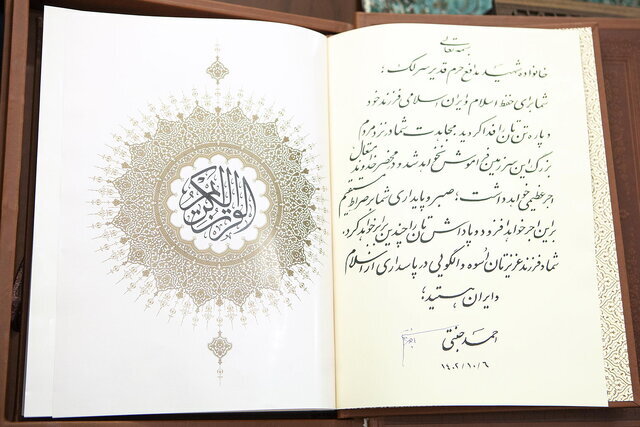 القرآن الکریم
بسمه تعالی
خانواده شهید مدافع حرم قدیر سرلک؛
شما برای حفظ اسلام و ایران اسلامی فرزند خود
و پاره تن تان را فدا کردید. مجاهدت شما در نزد مردم
بزرگ این سرزمین فراموش نخواهد شد و در محضر خداوند متعال
اجر عظیمی خواهد داشت؛ صبر و پایداری شما بر صراط مستقیم
بر این اجر خواهد افزود و پاداش تان را چندین برابر خواهد کرد.
شما و فرزند عزیزتان اسوه و الگویی در پاسداری از اسلام
و ایران هستید؛
احمد جنتی
۱۴۰۲/۱۰/۶